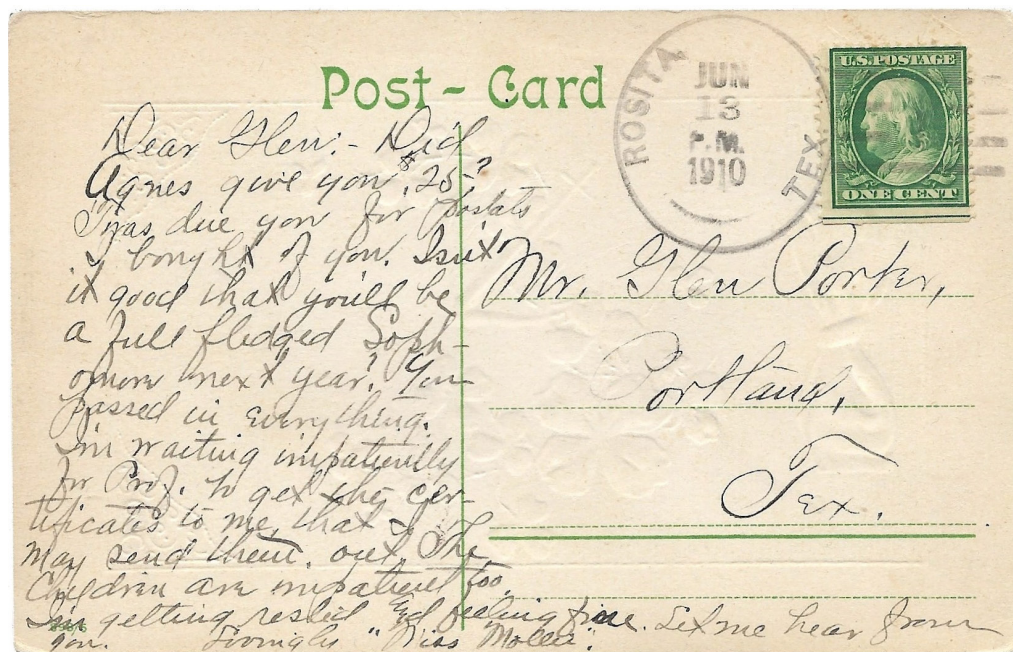 Post - Card
ROSITA
TEX.
JUN
13
P.M.
1910
U.S. POSTAGE
ONE CENT
Dear Glen:- Did
Agnes give you $.25?
'Twas due you for postals
I bought of you. Isn't
it good that you'll be
a full fledged Soph-
omore next year? You
passed in everything.
I'm waiting impatiently
for Prof. to get the cer-
tificates to me, that I
may send them out. The
Children are impatient too.
I'm getting rested & feeling fine. Let me hear from
you. Lovingly "Miss Mollie".
Mr. Glen Porter,
Portland,
Tex.